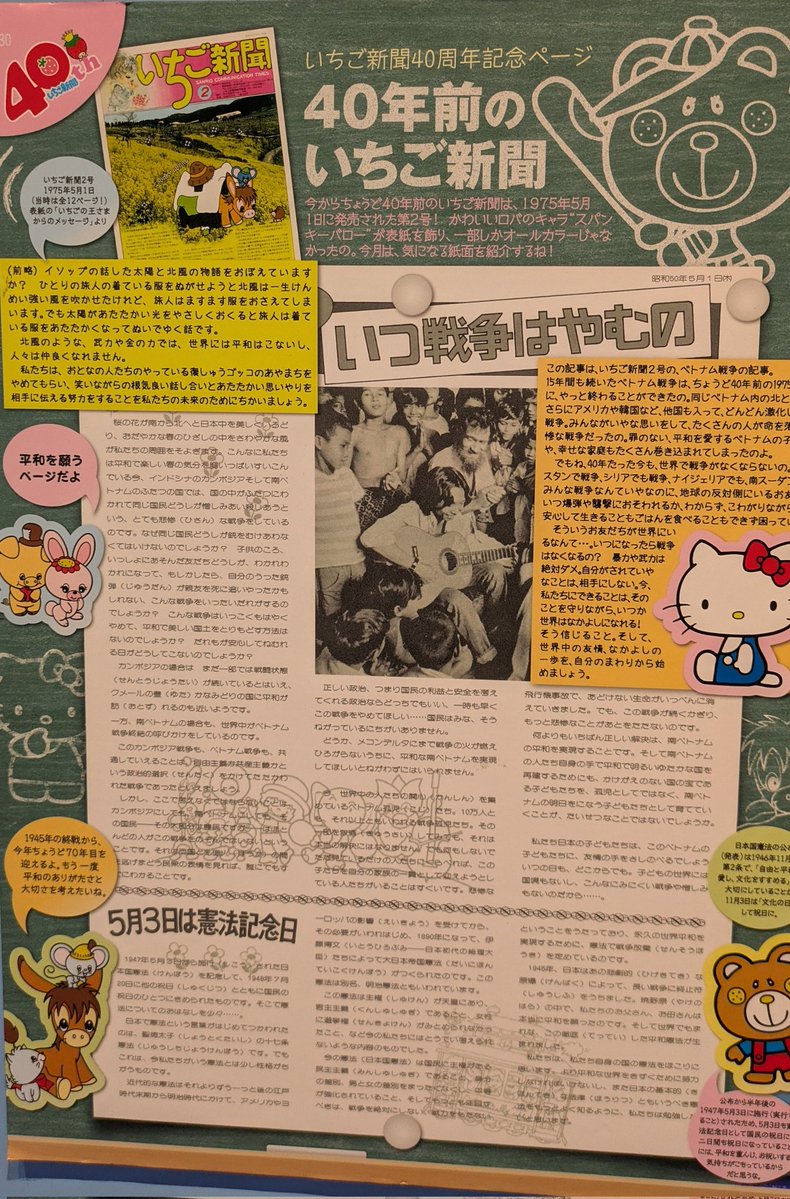 30
40th
いちご新聞
いちご新聞
SANRIO COMMUNICATION TIMES
2
いちご新聞40周年記念ページ
40年前の
いちご新聞
今からちょうど40年前のいちご新聞は、1975年5月
1日に発売された第2号! かわいいロバのキャラ“スパン
キーパロー”が表紙を飾り、一部しかオールカラーじゃな
かったの。今月は、気になる紙面を紹介するね!
いちご新聞2号
1975年5月1日
(当時は全12ページ!)
表紙の「いちごの王さま
からのメッセージ」より
(前略) イソップの話した太陽と北風の物語をおぼえています
か? ひとりの旅人の着ている服をぬがせようと北風は一生けん
めい強い風を吹かせたけれど、旅人はますます服をおさえてしま
います。でも太陽があたたかい光をやさしくおくると旅人は着て
いる服をあたたかくなってぬいでゆく話です。
北風のような、武力や金の力では、世界には平和はこないし、
人々は仲良くなれません。
私たちは、おとなの人たちのやっている復しゅうゴッコのあやまちを
やめてもらい、笑いながらの根気良い話し合いとあたたかい思いやりを
相手に伝える努力をすることを私たちの未来のためにちかいましょう。
昭和50年5月1日
いつ戦争はやむの
この記事は、いちご新聞2号の、ベトナム戦争の記事。
15年間も続いたベトナム戦争は、ちょうど40年前の1975
に、やっと終わることができたの。同じベトナム内の北と
さらにアメリカや韓国など、他国も入って、どんどん激化し
戦争。みんながいやな思いをして、たくさんの人が命を
惨な戦争だったの。罪のない、平和を愛するベトナムの子
や、幸せな家庭もたくさん巻き込まれてしまったのよ。
でもね、40年たった今も、世界で戦争がなくならないの。
スタンで戦争、シリアでも戦争、ナイジェリアでも、南スーダン
みんな戦争なんていやなのに、地球の反対側にいるお友
いつ爆弾や襲撃におそわれるか、わからず、こわがりながら
安心して生きることもごはんを食べることもできず困ってい
そういうお友だちが世界にい
るなんて…。いつになったら戦争
はなくなるの? 暴力や武力は
絶対ダメ。自分がされていや
なことは、相手にしない。今、
私たちにできることは、その
ことを守りながら、いつか
世界はなかよしになれる!
そう信じること。そして、
世界中の友情、なかよしの
一歩を、自分のまわりから始
めましょう。
平和を願う
ページだよ
桜の花が南から北へと日本中を美しくいろど
り、おだやかな春のひざしの中をさわやかな風
が私たちの周囲をそよぎます。こんなに私たち
は平和で楽しい春の気分を胸いっぱいすいこん
でいる今、インドシナのカンボジアそして南ベ
トナムのふたつの国では、国の中がふたつにわ
かれて同じ国民どうしが憎しみあい殺しあうと
いう、とても悲惨(ひさん)な戦争をしているの
です。なぜ同じ国民どうしが銃をむけあわなく
てはいけないのでしょうか? 子供のころ、
いっしょにあそんだ友だちどうしが、わかれわ
かれになって、もしかしたら、自分のうった銃
弾(じゅうだん)が親友を死に追いやったかも
しれない、こんな戦争をいったいだれがするの
でしょうか? こんな戦争はいっこくもはやく
やめて、平和で美しい国土をとりもどす方法は
ないのでしょうか? だれもが安心してねむれ
る日がどうしてこないのでしょうか?
カンボジアの場合は まだ一部では戦闘状態
(せんとうじょうたい)が続いているとはいえ、
クメールの豊(ゆた)かなみどりの国に平和が
訪(おとず)れるのも近いようです。
一方、南ベトナムの場合も、世界中がベトナム
戦争終結の呼びかけをしているのです。
このカンボジア戦争も、ベトナム戦争も、共
通していえることは、自由主義か共産主義かと
いう政治的選択(せんたく)をかけてたたかわ
れた戦争であったといえましょう。
正しい政治、つまり国民の利益と安全を考え
てくれる政治ならどっちでもいい、一時も早く
この戦争をやめてほしい……国民はみな、そう
ねがっているにちがいありません。
どうか、メコンデルタにまで戦争の火が燃え
ひろがらないうちに、平和な南ベトナムを実現
してほしいとねがわずにはいられません。
飛行機事故で、あどけない生命がいっぺんに消
えていきました。でも、この戦争が続くかぎり、
もっと悲惨なことがあとをたたないのです。
何よりもいちばん正しい解決は、南ベトナム
の平和を実現することです。そして南ベトナム
の人たち自身の手で平和で明るいゆたかな国を
再建するためにも、かけがえのない国の宝であ
る子どもたちを、孤児としてではなく、南ベト
ナムの明日をになう子どもたちとして育ててい
くことが、たいせつなことではないでしょうか。
私たち日本の子どもたちは、このベトナムの
子どもたちに、友情の手をさしのべるでしょう。
いつの日も、どこからでも。子どもの世界には
国境もないし、こんなみにくい戦争や憎しみも
ないのだから……。
1945年の終戦から、
今年ちょうど70年目を
迎えるよ。もう一度
平和のありがたさと
大切さを考えたいね。
5月3日は憲法記念日
日本で憲法という言葉がはじめてつかわれた
のは、聖徳太子(しょうとくたいし)の十七条
憲法(じゅうしちじょうけんぽう)です。でも
これは、今私たちがいう憲法とは少し性格がち
がうものです。
近代的な憲法はそれよりずうーっと後の江戸
時代末期から明治時代にかけて、アメリカやヨ
ーロッパの影響(えいきょう)を受けてから、
その必要がいわれはじめ、1890年になって、伊
藤博文(いとうひろぶみ——日本初代の総理大
臣)たちによって大日本帝国憲法(だいにほん
ていこくけんぽう)がつくられたのです。この
憲法は別名、明治憲法ともいわれています。
ということをうたっており、永久の世界平和を
実現するために、憲法で戦争放棄(せんそうほう
き)を定めているのです。
日本国憲法の公布
(発表)は1946年11月
第2条で、「自由と平和
愛し、文化をすすめる」
大切にしていることか
11月3日は「文化の日
して祝日に。
公布から半年後の
1947年5月3日に施行(実行す
ること)されたため、5月3日も
法記念日として国民の祝日に
二日間も祝日になっていること
には、平和を重んじ、お祝いす
気持ちがこもっているから
だと思うな。